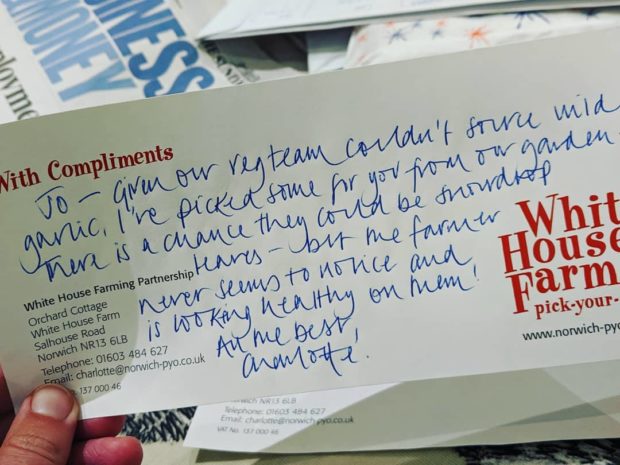 BUSINESS
&MONEY
With Compliments
Jo – Given our veg team couldn't source wild
garlic, I've picked some for you from our garden –
There is a chance they could be snowdrop
leaves – but the farmer
never seems to notice and
is looking healthy on them!
All the best,
Charlotte.
White House Farming Partnership
Orchard Cottage
White House Farm
Salhouse Road
Norwich NR13 6LB
Telephone: 01603 484 627
Email: charlotte@norwich-pyo.co.uk
No. 137 000 46
Whit
House
Farm
pick-your-
www.norwich-pyo
NR13 6LB
Telephone: 01603 484 627
Email: charlotte@norwich-pyo.co.uk
VAT No. 137 000 46